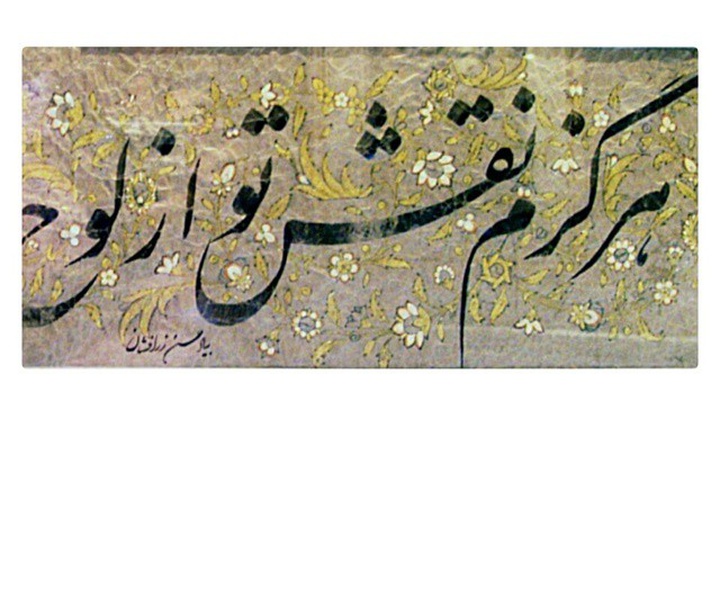 هرگزم نقش تو از لوح